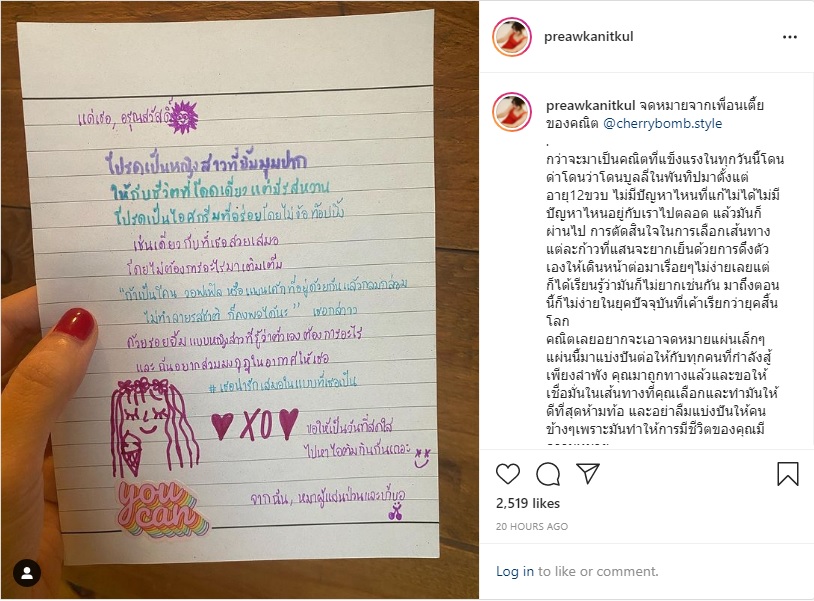 แด่เธอ, อรุณสวัสดิ์
โปรดเป็นหญิงสาวที่ยิ้มมุมปาก
ให้กับชีวิตที่โดดเดี่ยวแต่มีรสหวาน
โปรดเป็นไอศกรีมที่อร่อยโดยไม่ง้อท๊อปปิ้ง
เช่นเดียวกับที่เธอสวยเสมอ
โดยไม่ต้องการอะไรมาเติมเต็ม
"ถ้าเป็นโคน วอฟเฟิล หรือแพนเค้กที่อยู่ด้วยกันแล้วกลมกล่อม
ไม่ทำลายรสชาติ ก็คงพอได้นะ" เธอกล่าว
ด้วยรอยยิ้มแบบหญิงสาวที่รู้ว่าตัวเองต้องการอะไร
และฉันอยากสวมมงกุฎในอากาศให้เธอ
#เธอน่ารักเสมอในแบบที่เธอเป็น
XO
ขอให้เป็นวันที่สดใส
ไปหาไอติมกินกันเถอะ
you can
จากฉัน, หมาผู้แสนป่วนและเก้บอ
preawkanitkul
preawkanitkul จดหมายจากเพื่อนเตี้ย
ของคณิต @cherrybomb.style
.
กว่าจะมาเป็นคณิตที่แข็งแรงในทุกวันนี้โดน
ด่าโดนว่าโดนบูลลี่ในพันทิปมาตั้งแต่
อายุ12ขวบ ไม่มีปัญหาไหนที่แก้ไม่ได้ไม่มี
ปัญหาไหนอยู่กับเราไปตลอด แล้วมันก็
ผ่านไป การตัดสินใจในการเลือกเส้นทาง
แต่ละก้าวที่แสนจะยากเย็นด้วยการดึงตัว
เองให้เดินหน้าต่อมาเรื่อยๆไม่ง่ายเลยแต่
ก็ได้เรียนรู้ว่ามันก็ไม่ยากเช่นกัน มาถึงตอน
นี้ก็ไม่ง่ายในยุคปัจจุบันที่เค้าเรียกว่ายุคสิ้น
โลก
คณิตเลยอยากจะเอาจดหมายแผ่นเล็กๆ
แผ่นนี้มาแบ่งปันต่อให้กับทุกคนที่กำลังสู้
เพียงลำพัง คุณมาถูกทางแล้วและขอให้
เชื่อมั่นในเส้นทางที่คุณเลือกและทำมันให้
ดีที่สุดห้ามท้อ และอย่าลืมแบ่งปันให้คน
ข้างๆเพราะมันทำให้การมีชีวิตของคุณมี
2,519 likes
20 HOURS AGO
Log in to like or comment.